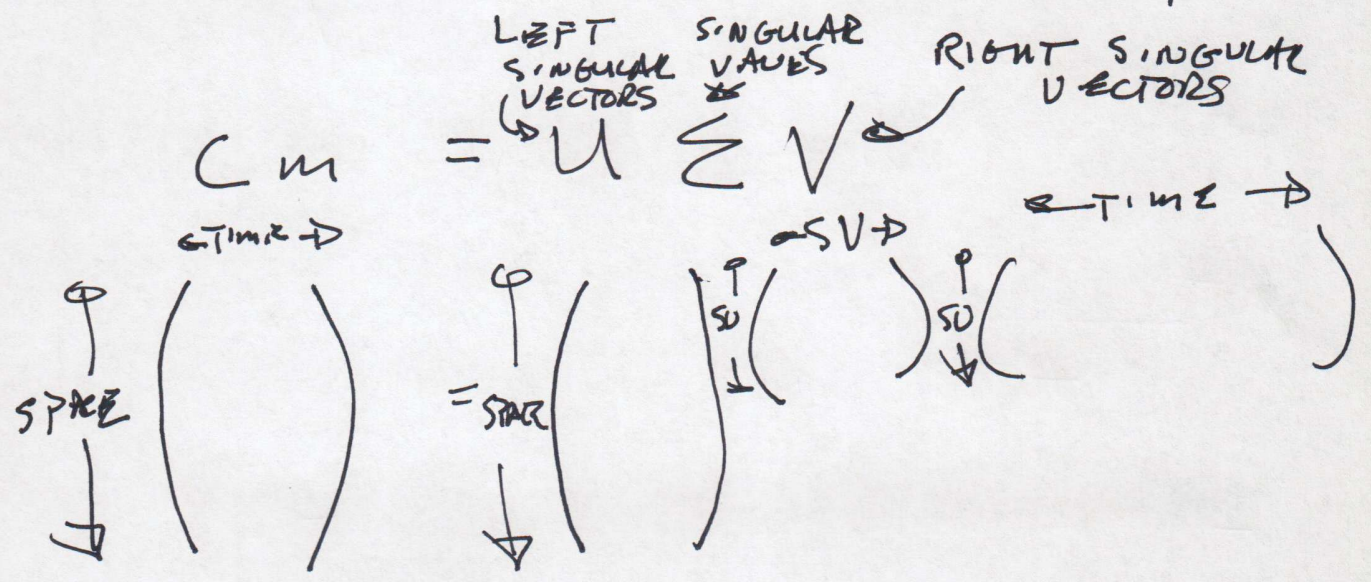 LEFT
SINGULAR
VECTORS
SINGULAR
VALUES
RIGHT SINGULAR
VECTORS
Cm = U Σ V
←TIME→
←SV→
←TIME→
SPACE
= SPACE
SV
SV